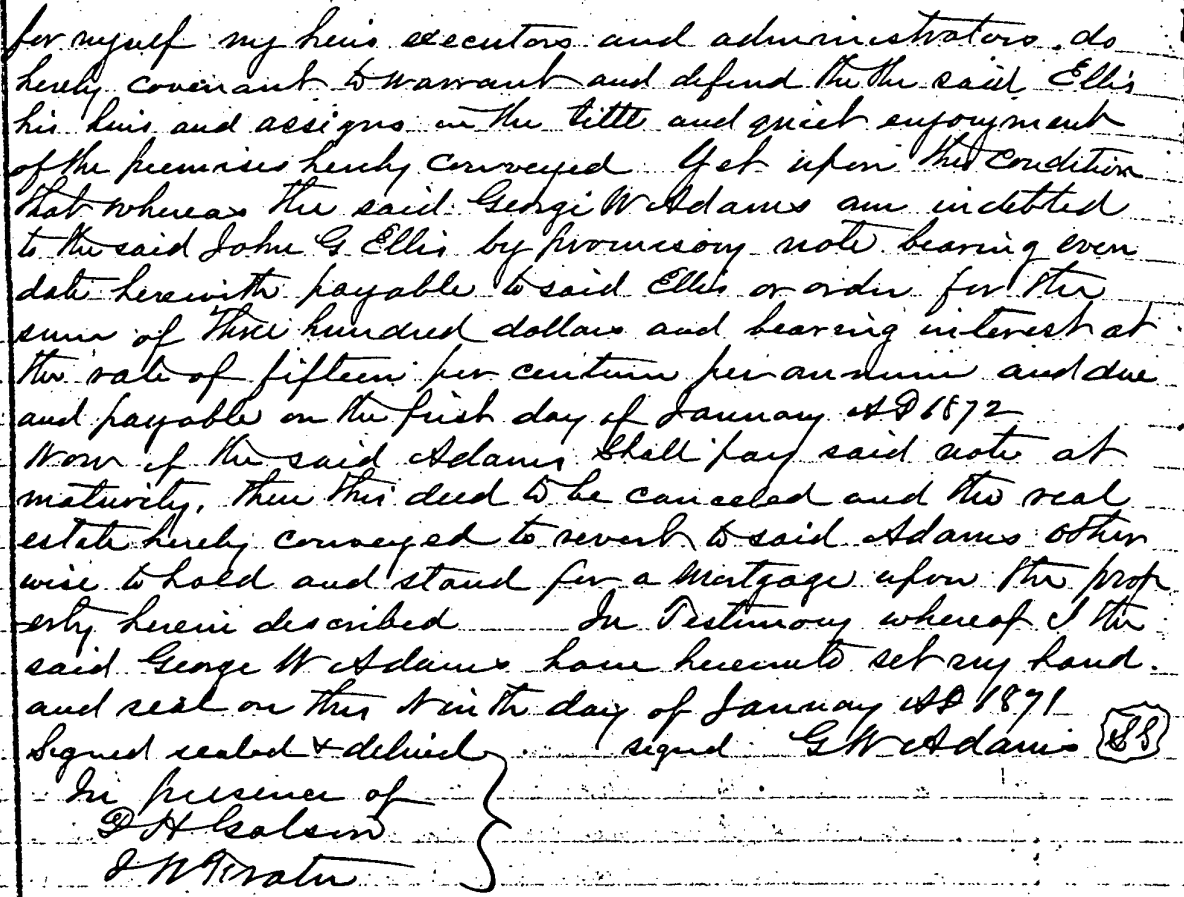 for myself my heirs executors and administrators do
hereby covenant to warrant and defend the the said Ellis
his heirs and assigns in the title and quiet enjoyment
of the premises hereby conveyed Yet upon this condition
that whereas the said George W Adams am indebted
to the said John G Ellis by promisory note bearing even
date herewith payable to said Ellis or order for the
sum of three hundred dollars and bearing interest at
the rate of fifteen per centum per annum and due
and payable on the first day of January AD 1872
Now if the said Adams shall pay said note at
maturity, then this deed to be canceled and the real
estate hereby conveyed to revert to said Adams other
wise to hold and stand for a Mortgage upon the prop
erty herein described In Testimony whereof I the
said George W Adams have hereunto set my hand.
and seal on this Ninth day of January AD 1871
Signed sealed & delivd signed G W Adams SS
In presence of
D H
J W